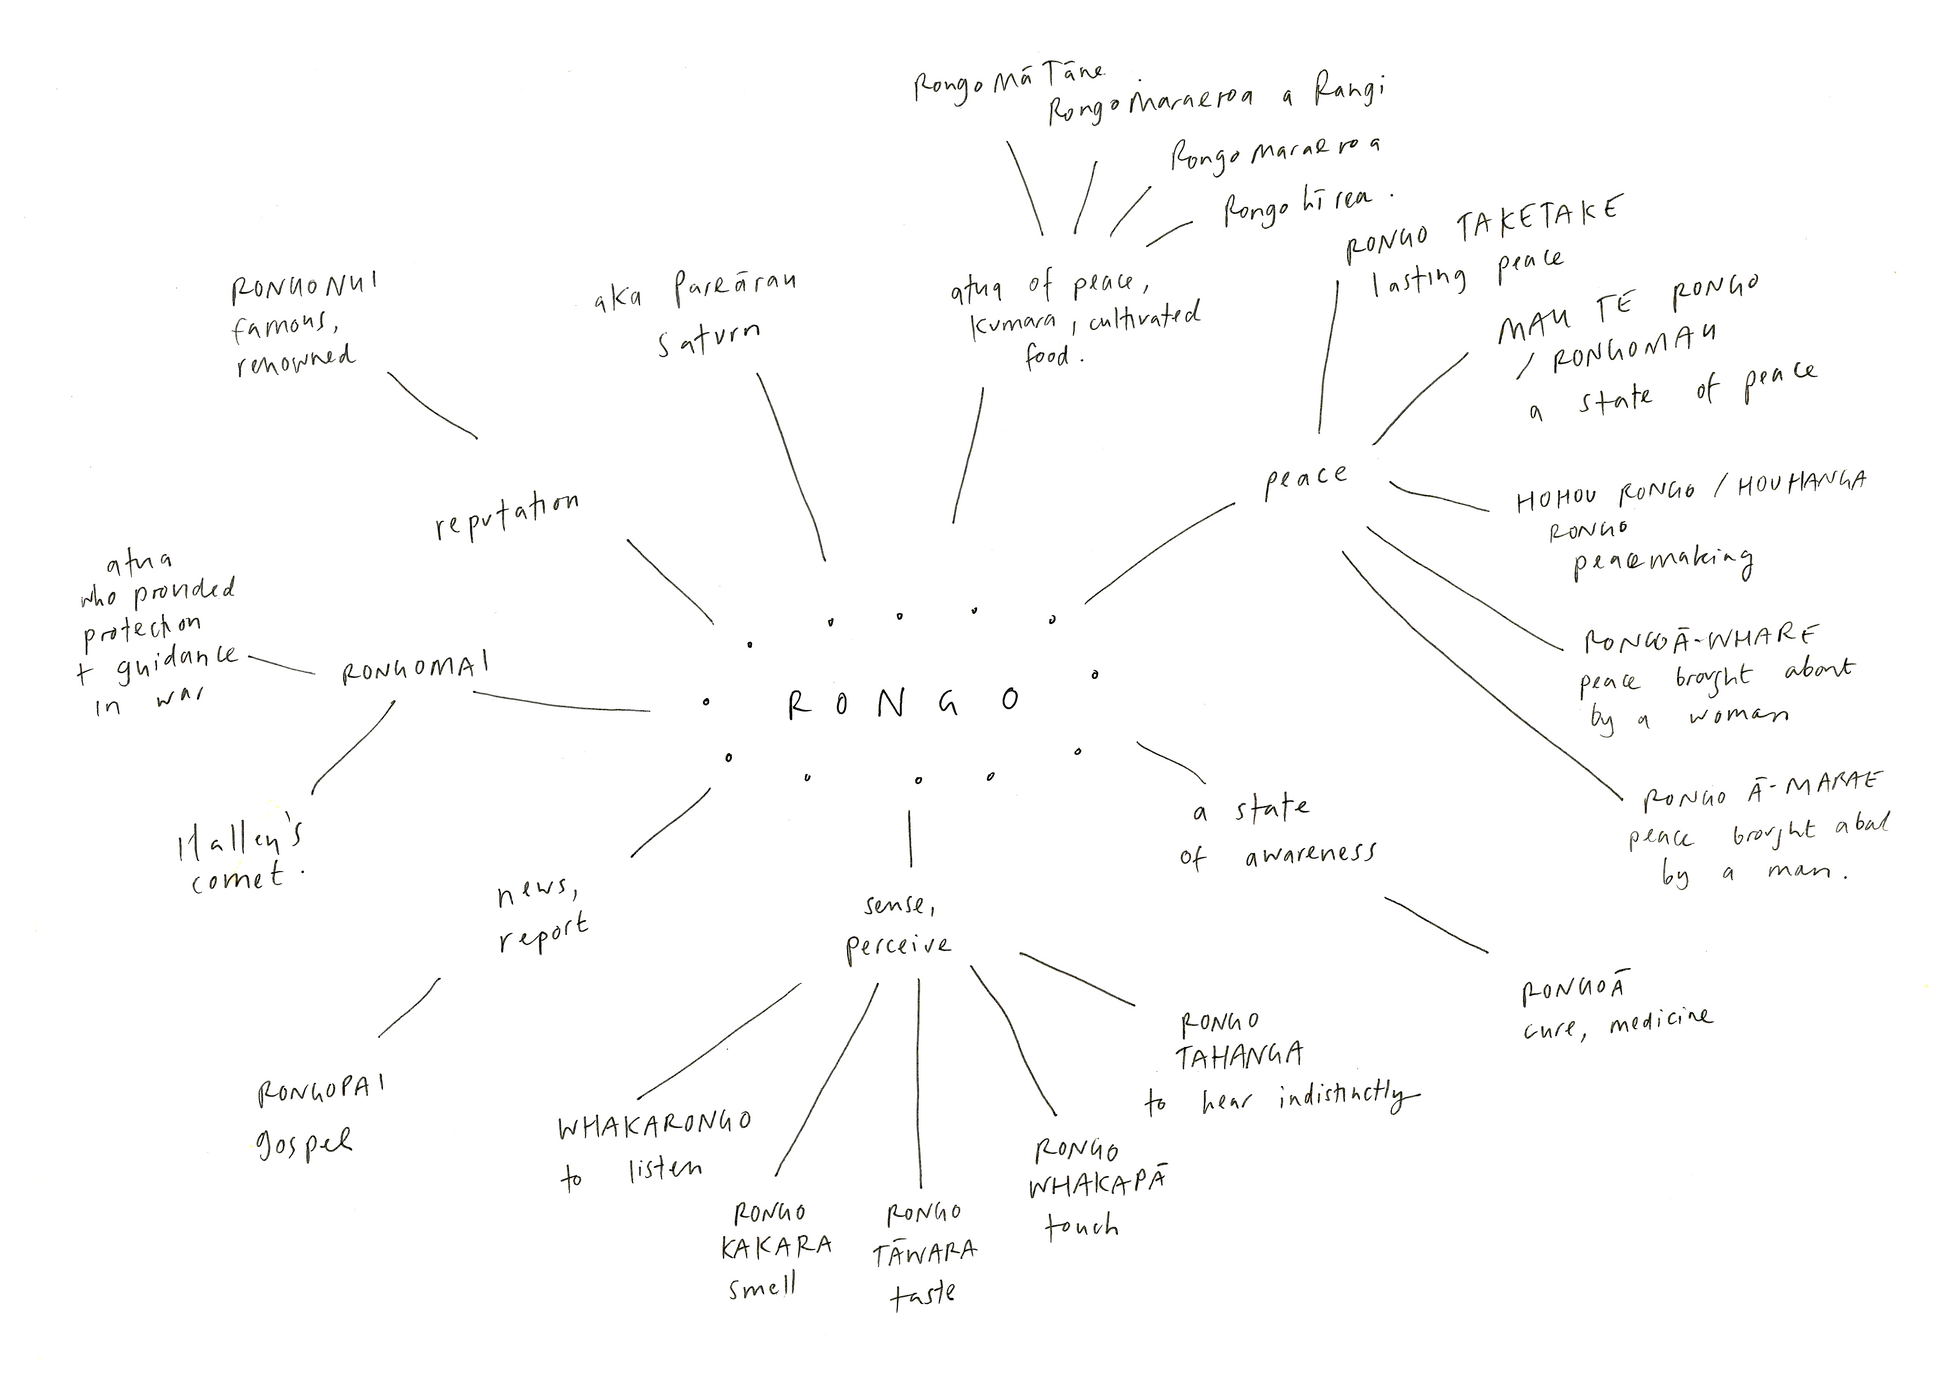 Rongo Mā Tāne
Rongo Maraeroa a Rangi
Rongo Maraeroa
Rongo hīrea.
atua of peace,
kumara, cultivated
food.
aka Pareārau
saturn
RONGONUI
famous,
renowned
reputation
RONGO TAKETAKE
lasting peace
MAU TE RONGO
/ RONGOMAU
a state of peace
peace
HOHOU RONGO / HOUHANGA
RONGO
peacemaking
RONGOĀ-WHARE
peace brought about
by a woman
RONGO Ā-MARAE
peace brought about
by a man.
atua
who provided
protection
+ guidance
in war
RONGOMAI
Halley's
comet.
RONGO
a state
of awareness
RONGOĀ
cure, medicine
news,
report
RONGOPAI
gospel
sense,
perceive
WHAKARONGO
to listen
RONGO
KAKARA
smell
RONGO
TĀWARA
taste
RONGO
WHAKAPĀ
touch
RONGO
TAHANGA
to hear indistinctly